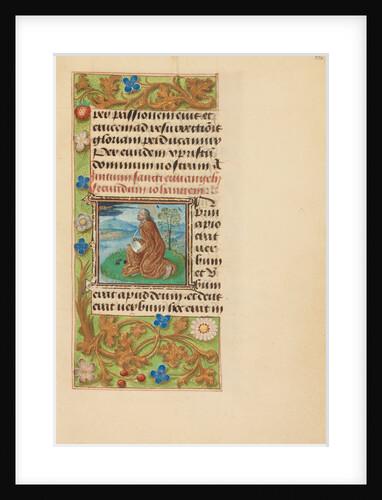 per passionem eius et
crucem ad resurrectiōis
gloriam perducamur
Per eundem xp̄istū
dominum nostrum. A
Initium sancti euangelij
secundum iohannem
N prin
cipio
erat
uer
bum
et v
bum
erat apud deum et deus
erat uerbum hoc erat in